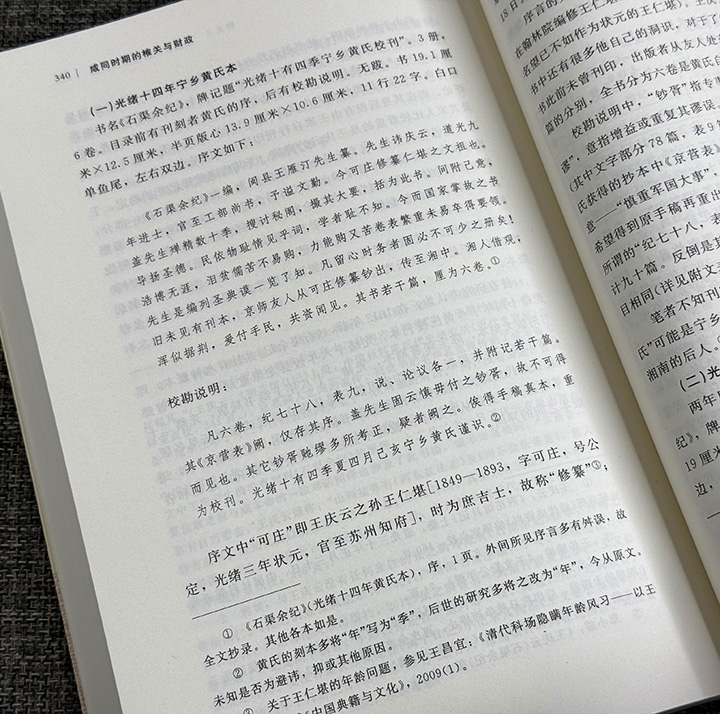 340 | 咸同时期的榷关与财政
(一)光绪十四年宁乡黄氏本
书名《石渠余纪》，牌记题“光绪十有四季宁乡黄氏校刊”。3册，
6卷。目录前有刊刻者黄氏的序，后有校勘说明。无跋。书19.1厘
米×12.5厘米，半页版心13.9厘米×10.6厘米，11行22字。白口
单鱼尾，左右双边。序文如下：
《石渠余纪》一编，闽县王雁汀先生纂。先生讳庆云，道光九
年进士，官至工部尚书，予谥文勤。今可庄修纂仁堪之文祖也。
盖先生殚精数十季，搜讨秘阁，撮其大要，括为此书。问附己意，
导扬圣德。民依物耻情见乎词，学者耻不知。今而国家掌故之书
浩博无涯，泪贫儒苦不易购，力能购又苦卷表繁重未易卒得要领。
先生是编到圣典谟一览了知。凡留心时务者固必不可少之册矣！
旧未见有刊本，京师友人从可庄修纂钞出，传至湘中。湘人借观，
浑似据荆，爰付手民，共资闻见。其书若干篇，厘为六卷。①
校勘说明：
凡六卷，纪七十八，表九，说、论议各一，并附记若干篇。
其《京营表》阙，仅存其序。盖先生图云慎毋付之钞胥，故不可得
而见也。其它钞胥虵缪多所考正，疑者阙之。俟得手稿真本，重
为校刊。光绪十有四季夏四月己亥宁乡黄氏谨识。②
序文中“可庄”即王庆云之孙王仁堪[1849—1893，字可庄，号公
定，光绪三年状元，官至苏州知府]，时为庶吉士，故称“修纂”③；
① 《石渠余纪》(光绪十四年黄氏本)，序，1页。外间所见序言多有舛误，故
全文抄录。其他各本如是。
② 黄氏的刻本多将“年”写为“季”，后世的研究多将之改为“年”，今从原文。
未知是否为避讳，抑或其他原因。
③ 关于王仁堪的年龄问题，参见王昌宜：《清代科场隐瞒年龄风习——以王
《中国典籍与文化》，2009(1)。
18日
序言的
在翰林院编修王仁堪)、
名望已不如作为状元的王仁堪)
书中还有很多他自己的洞识，对于了
书此前未曾刊印，出版者从友人处
篇的分别，全书分为六卷是黄氏自
校勘说明中，“钞胥”指专
谬”，意指增益或重复其谬误，
(其中文字部分78篇，表9
氏获得的抄本中《京营表》
意——“慎重军国大事”，
希望得到原手稿再重出
所谓的“纪七十八，表
计九十篇。反倒是
目相同(详见附文
笔者不知刊
氏”可能是宁乡
湘南的后人。
(二)光
两年
纪》，牌
19厘米
边，